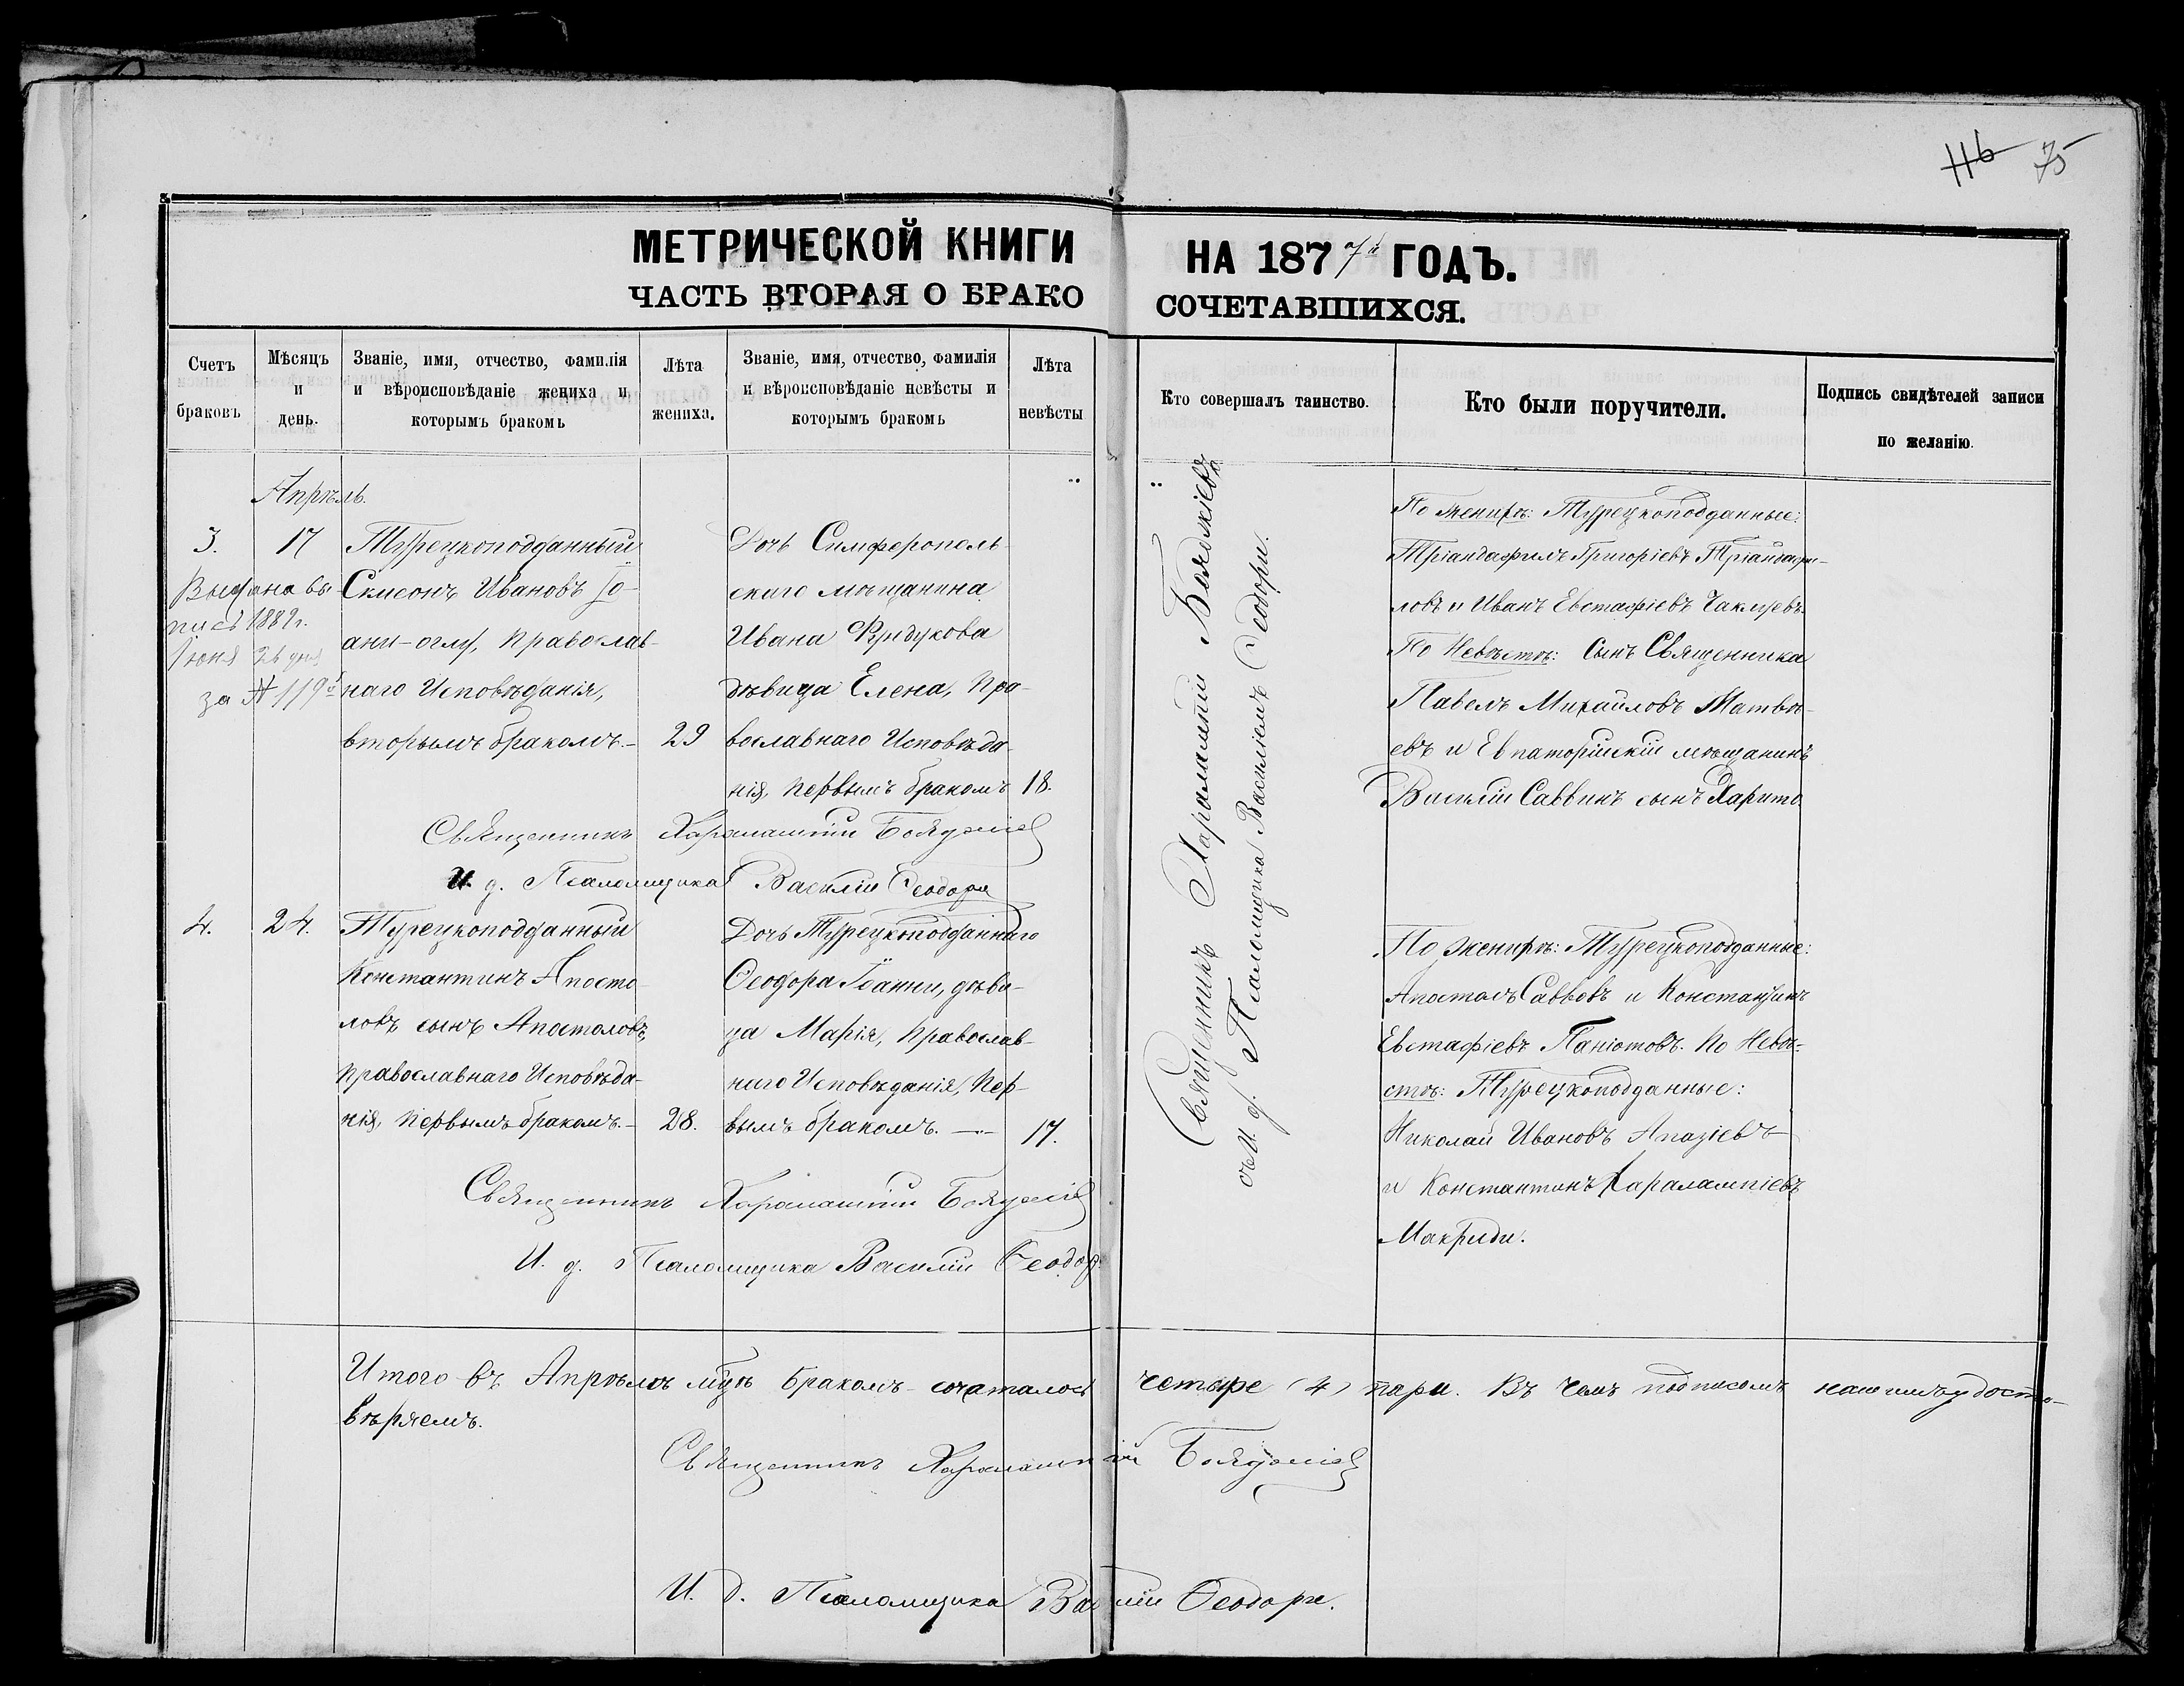 116 75
МЕТРИЧЕСКОЙ КНИГИ НА 1877й ГОДЪ.
ЧАСТЬ ВТОРАЯ О БРАКОСОЧЕТАВШИХСЯ.
Счетъ браковъ
Мѣсяцъ и день.
Званіе, имя, отчество, фамилія и вѣроисповѣданіе жениха и которымъ бракомъ
Лѣта жениха.
Званіе, имя, отчество, фамилія и вѣроисповѣданіе невѣсты и которымъ бракомъ
Лѣта невѣсты
Кто совершалъ таинство.
Кто были поручители.
Подпись свидѣтелей записи по желанію.
Апрѣль.
3.
17
Выдана вы-
пись 1889г.
Іюня 26 дня
за № 119й
Турецкоподданный
Симеонъ Ивановъ Іо-
ани-оглу, Православ-
наго Исповѣданія,
вторымъ бракомъ.-
29
Дочь Симферополь-
скаго мѣщанина
Ивана
дѣвица Елена, Пра-
вославнаго Исповѣда-
нія, первымъ бракомъ
18.
Священникъ Харалампій Бояджіевъ
И. д. Псаломщика Василій Ѳеодори
По женихѣ: Турецкоподданные:
Тріандафилъ Григоріевъ Тріандафи-
ловъ и Иванъ Евстафіевъ
По Невѣстѣ: Сынъ Священника
Павелъ Михайловъ Матвѣ-
евъ и Евпаторійскій мѣщанинъ
Василій Саввинъ сынъ Харито
Священникъ Харалампій Бояджіевъ
съ И. д. Псаломщика Василіемъ Ѳеодори.
4.
24.
Турецкоподданный
Константинъ Апосто-
ловъ сынъ Апостоловъ,
Православнаго Исповѣда-
нія, первымъ бракомъ.-
28.
Дочь Турецкоподданнаго
Ѳеодора Іоанни, дѣви-
ца Марія, Православ-
наго Исповѣданія, Пер-
вымъ бракомъ.
17.
Священникъ Харалампій Бояджіевъ
И. д. Псаломщика Василій Ѳеодори
По женихѣ: Турецкоподданные:
Апостолъ Саввовъ и Константинъ
Евстафіевъ Паніотовъ. По Невѣ-
стѣ: Турецкоподданные:
Николай Ивановъ Апазіевъ
и Константинъ Харалампіевъ
Макриди.
Итого въ Апрѣлѣ мцѣ бракомъ сочеталось четыре (4) пары. Въ чемъ подписомъ нашимъ удосто-
вѣряемъ.
Священникъ Харалампій Бояджіевъ
И. д. Псаломщика Василій Ѳеодори.